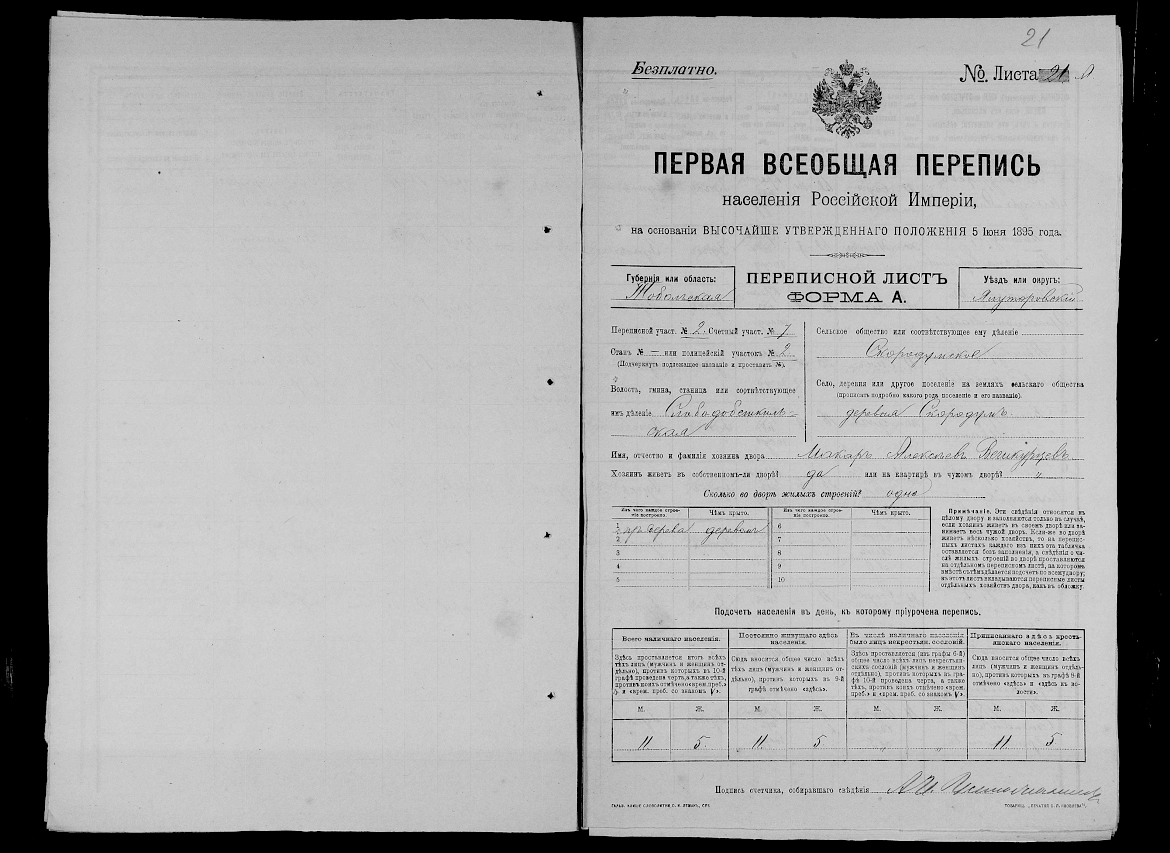 21
Безплатно.
№. Листа 21
ПЕРВАЯ ВСЕОБЩАЯ ПЕРЕПИСЬ
населенія Россійской Имперіи,
на основаніи ВЫСОЧАЙШЕ УТВЕРЖДЕННАГО ПОЛОЖЕНІЯ 5 Іюня 1895 года.
Губернія или область:
Тобольская
ПЕРЕПИСНОЙ ЛИСТЪ
ФОРМА А.
Уѣздъ или округъ:
Ялуторовскій
Переписной участ. № 2. Счетный участ. № 7
Станъ № — или полицейскій участокъ № 2
(Подчеркнуть подлежащее названіе и проставить №).
Волость, гмина, станица или соотвѣтствующее
имъ дѣленіе Слободобешкиль-
ская
Сельское общество или соотвѣтствующее ему дѣленіе
Скородумское
Село, деревня или другое поселеніе на земляхъ сельскаго общества
(прописать подробно какого рода поселеніе и его названіе).
деревня Скородумъ
Имя, отчество и фамилія хозяина двора Макаръ Алексѣевъ
Хозяинъ живетъ въ собственномъ-ли дворѣ? да или на квартирѣ въ чужомъ дворѣ? "
Сколько во дворѣ жилыхъ строеній? одно
Изъ чего каждое строе-
ніе построено.
Чѣмъ крыто.
Изъ чего каждое строе-
ніе построено.
Чѣмъ крыто.
1 изъ дерева деревомъ
2
3
4
5
6
7
8
9
10
Примѣчаніе. Эти свѣдѣнія относятся къ
цѣлому двору и заполняются только въ случаѣ,
если хозяинъ живетъ въ своемъ дворѣ или за-
нимаетъ весь чужой дворъ. Если-же во дворѣ
живетъ нѣсколько хозяйствъ, то на перепис-
ныхъ листахъ каждаго изъ нихъ эта табличка
оставляется безъ заполненія, а свѣдѣнія о чи-
слѣ жилыхъ строеній во дворѣ проставляются
на отдѣльномъ переписномъ листѣ, на которомъ
вмѣстѣ съ тѣмъ дѣлается подсчетъ по всему двору;
въ этотъ листъ вкладываются переписные листы
отдѣльныхъ хозяйствъ двора, какъ въ обложку.
Подсчетъ населенія въ день, къ которому пріурочена перепись.
Всего наличнаго населенія.
Здѣсь проставляется итогъ всѣхъ
тѣхъ лицъ (мужчинъ и женщинъ от-
дѣльно), противъ которыхъ въ 10-й
графѣ проведена черта, а также тѣхъ,
противъ коихъ отмѣчено «врем. преб.»
и «врем. преб. со знакомъ V».
Постоянно живущаго здѣсь
населенія.
Сюда вносится общее число всѣхъ
тѣхъ лицъ (мужчинъ и женщинъ от-
дѣльно), противъ которыхъ въ 9-й
графѣ отмѣчено «здѣсь».
Въ числѣ наличнаго населенія
было лицъ некрестьян. сословій.
Здѣсь проставляется (изъ графы 6-й)
общее число всѣхъ лицъ некрестьян-
скихъ сословій (мужчинъ и женщинъ
отдѣльно), противъ которыхъ въ гра-
фѣ 10-й проведена черта, а также
тѣхъ, противъ коихъ отмѣчено «врем.
преб.» и «врем. преб. со знакомъ V».
Приписаннаго здѣсь кресть-
янскаго населенія.
Сюда вносится общее число всѣхъ
лицъ (мужчинъ и женщинъ отдѣль-
но), противъ которыхъ въ графѣ 8-й
отмѣчено «здѣсь» и «здѣсь въ во-
лости».
М. Ж. М. Ж. М. Ж. М. Ж.
11 5. 11 5 " " 11 5
Подпись счетчика, собиравшаго свѣдѣнія